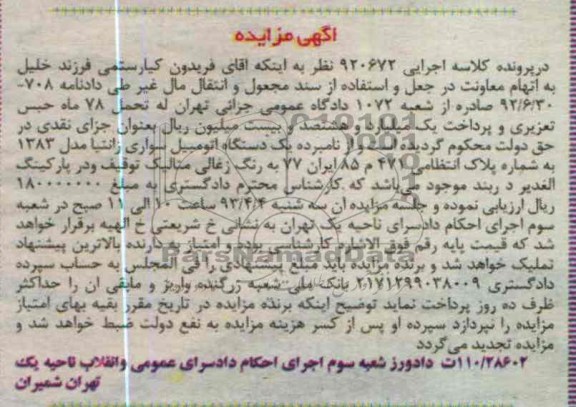 آگهی مزایده
درپرونده کلاسه اجرایی ۹۲۰۶۷۲ نظر به اینکه اقای فریدون کیارستمی فرزند خلیل
به اتهام معاونت در جعل و استفاده از سند مجعول و انتقال مال غیر طی دادنامه ۷۰۸-
۹۲/۶/۳۰ صادره از شعبه ۱۰۷۲ دادگاه عمومی جزائی تهران له تحمل ۷۸ ماه حبس
تعزیری و پرداخت یک میلیارد و هشتصد و بیست میلیون ریال بعنوان جزای نقدی در
حق دولت محکوم گردیده است و از نامبرده یک دستگاه اتومبیل سواری زانتیا مدل ۱۳۸۳
به شماره پلاک انتظامی ۴۷۰ م ۸۵ ایران ۷۷ به رنگ زغالی متالیک توقیف ودر پارکینگ
الغدیر د ربند موجود می‌باشد که کارشناس محترم دادگستری به مبلغ ۱۸۰۰۰۰۰۰۰
ریال ارزیابی نموده و جلسه مزایده آن سه شنبه ۹۳/۴/۴ ساعت ۱۰ الی ۱۱ صبح در شعبه
سوم اجرای احکام دادسرای ناحیه یک تهران به نشانی خ شریعتی خ الهیه برقرار خواهد
شد که قیمت پایه رقم فوق الاشاره کارشناسی بوده و امتیاز به دارنده بالاترین پیشنهاد
تملیک خواهد شد و برنده مزایده باید مبلغ پیشنهادی را فی المجلس به حساب سپرده
دادگستری ۲۱۷۱۲۹۹۰۳۸۰۰۹ بانک ملی شعبه زرگنده واریز و مابقی ان را حداکثر
ظرف ده روز پرداخت نماید توضیح اینکه برنده مزایده در تاریخ مقرر بقیه بهای امتیاز
مزایده را نپردازد سپرده او پس از کسر هزینه مزایده به نفع دولت ضبط خواهد شد و
مزایده تجدید می‌گردد
۱۱۰/۲۸۶۰۲ت دادورز شعبه سوم اجرای احکام دادسرای عمومی وانقلاب ناحیه یک
تهران شمیران
ParsNamadData